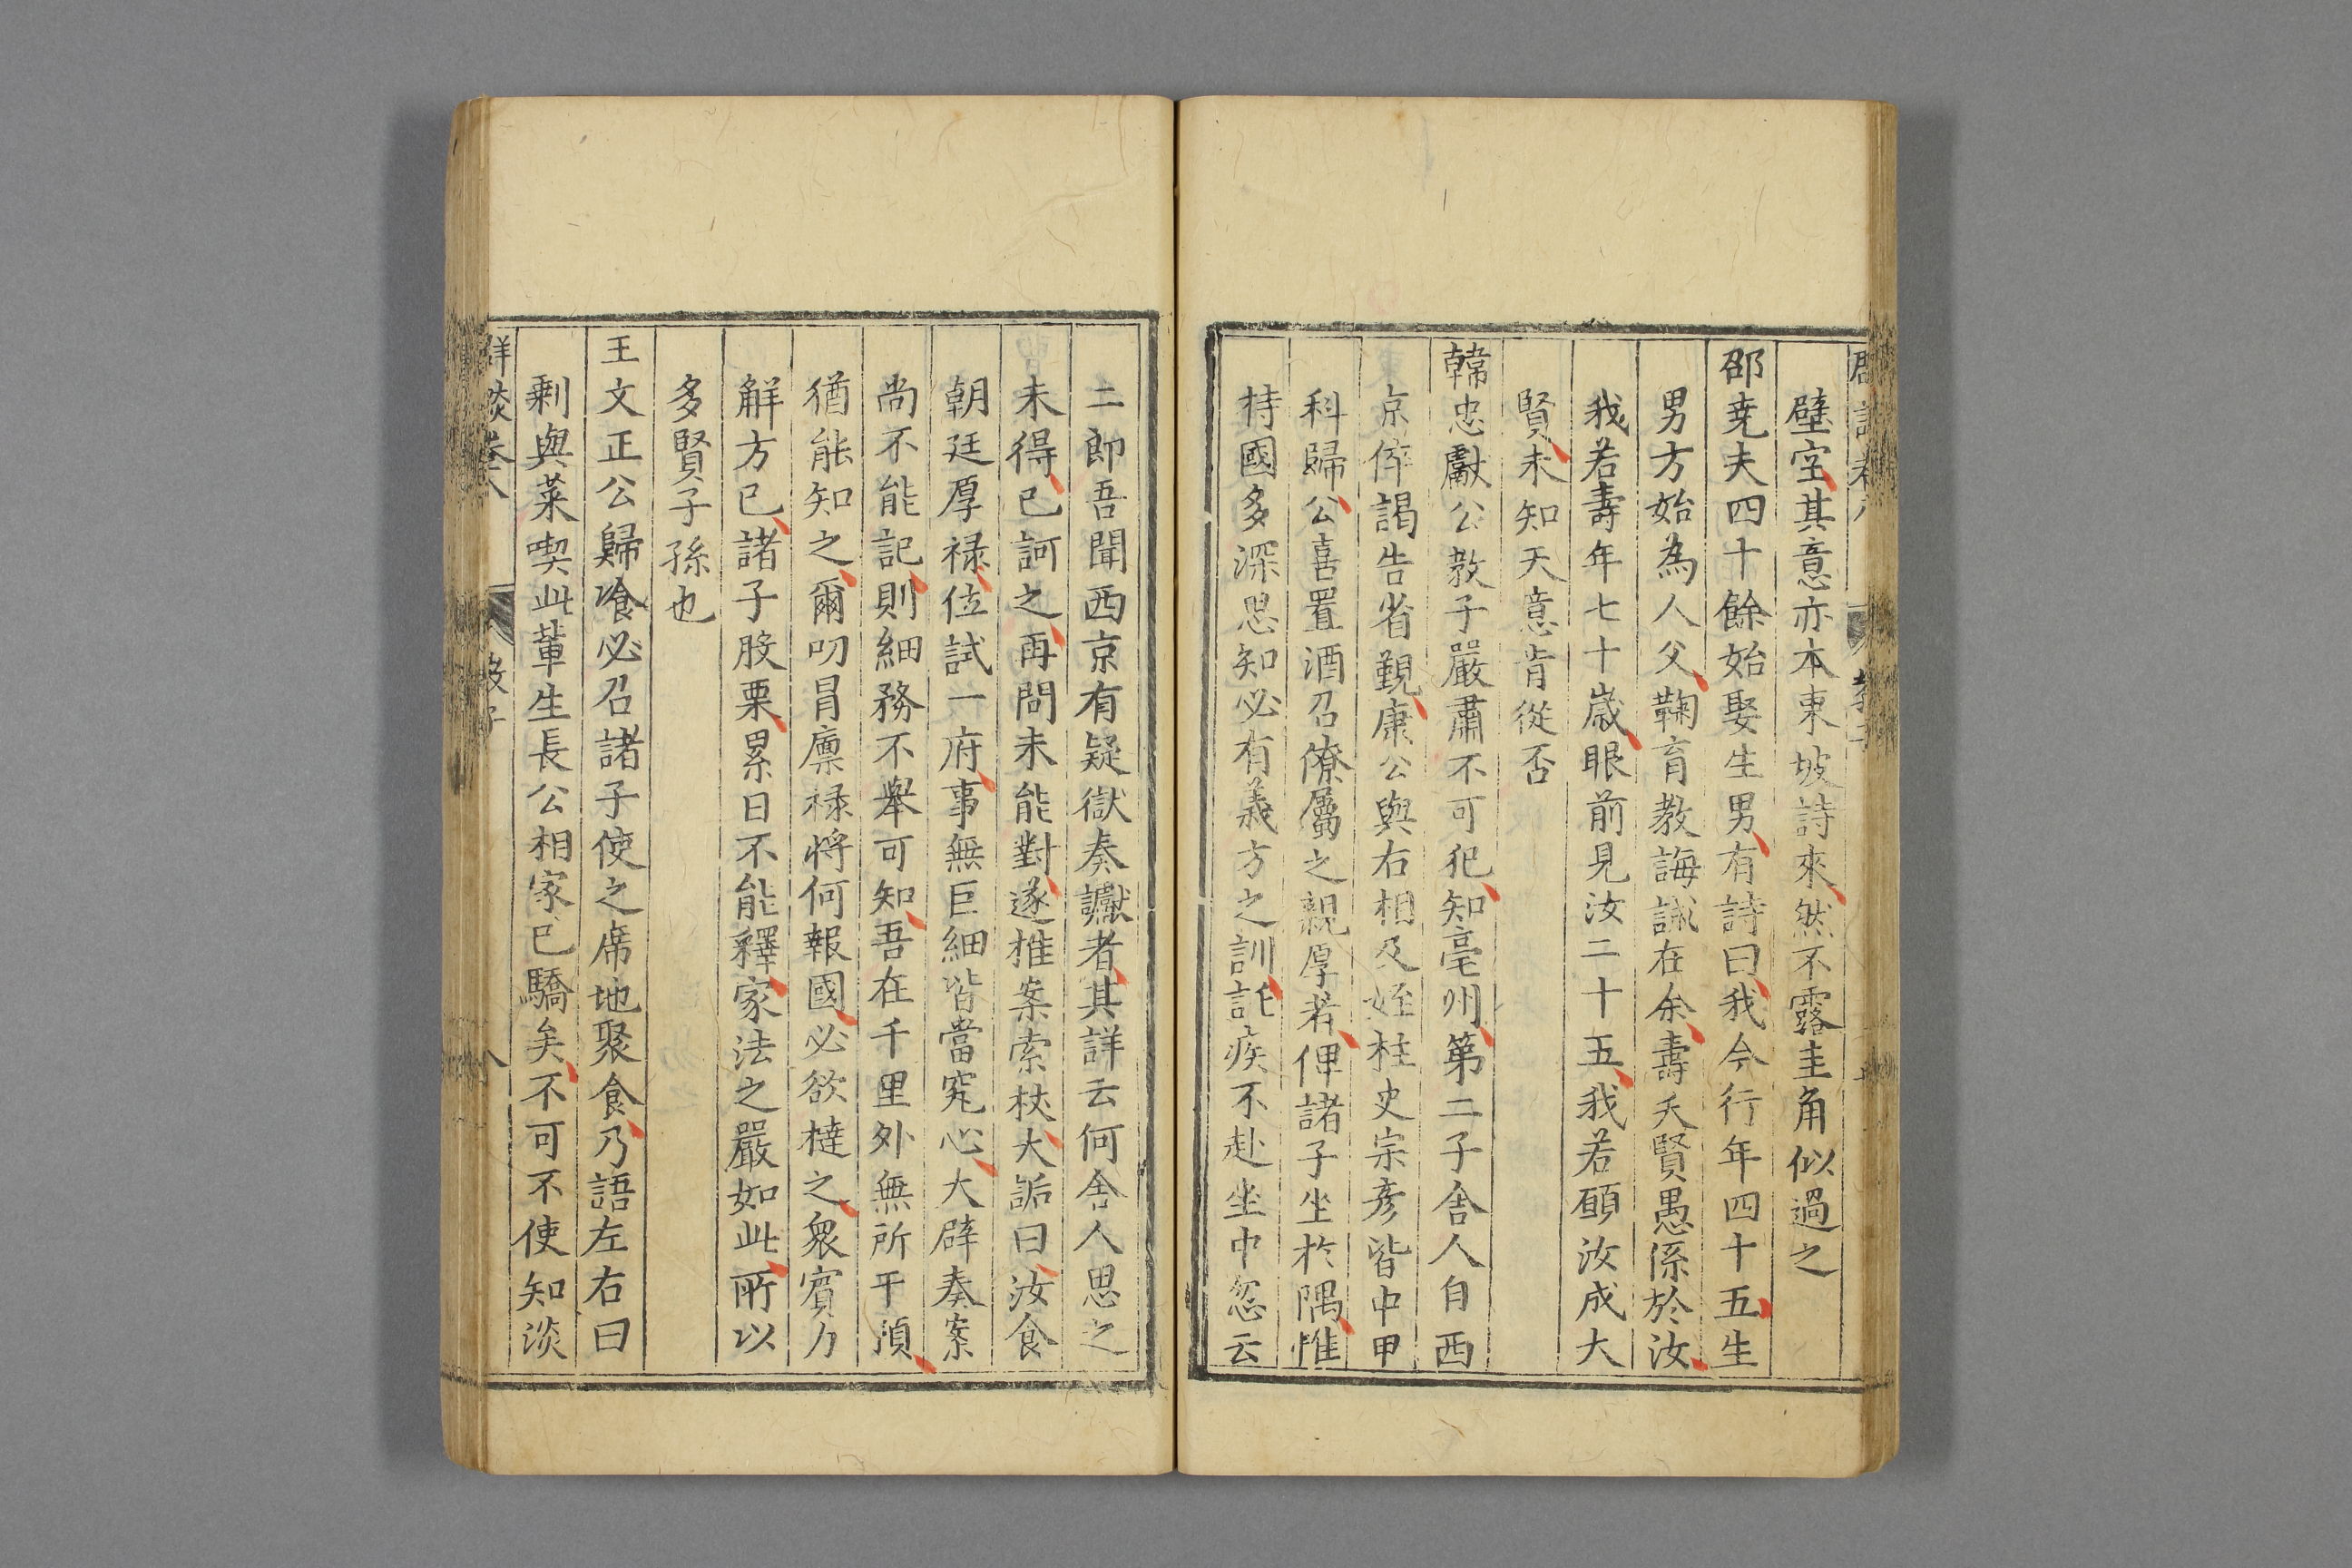 壁空其意亦本東坡詩來然不露圭角似過之
邵堯夫四十餘始娶生男有詩曰我今行年四十五生
男方始為人父鞠育教誨誠在余壽夭賢愚係於汝
我若壽年七十歲眼前見汝二十五我若願汝成大
賢未知天意肯從否
韓忠獻公教子嚴肅不可犯知亳州第二子舍人自西
京倅謁告省覲康公與右相及姪柱史宗彥皆中甲
科歸公喜置酒召僚屬之親厚者俾諸子坐於隅惟
持國多深思知必有義方之訓託疾不赴坐中忽云
二郎吾聞西京有疑獄奏讞者其詳云何舍人思之
未得已訶之再問未能對遂推案索杖大詬曰汝食
朝廷厚祿位試一府事無巨細皆當究心大辟奏案
尚不能記則細務不舉可知吾在千里外無所干須
猶能知之爾叨冒廩祿將何報國必欲撻之衆賓力
解方已諸子股栗累日不能釋家法之嚴如此所以
多賢子孫也
王文正公歸飡必召諸子使之席地聚食乃語左右曰
剩與菜喫此輩生長公相家已驕矣不可不使知淡
群談卷八 教子 八